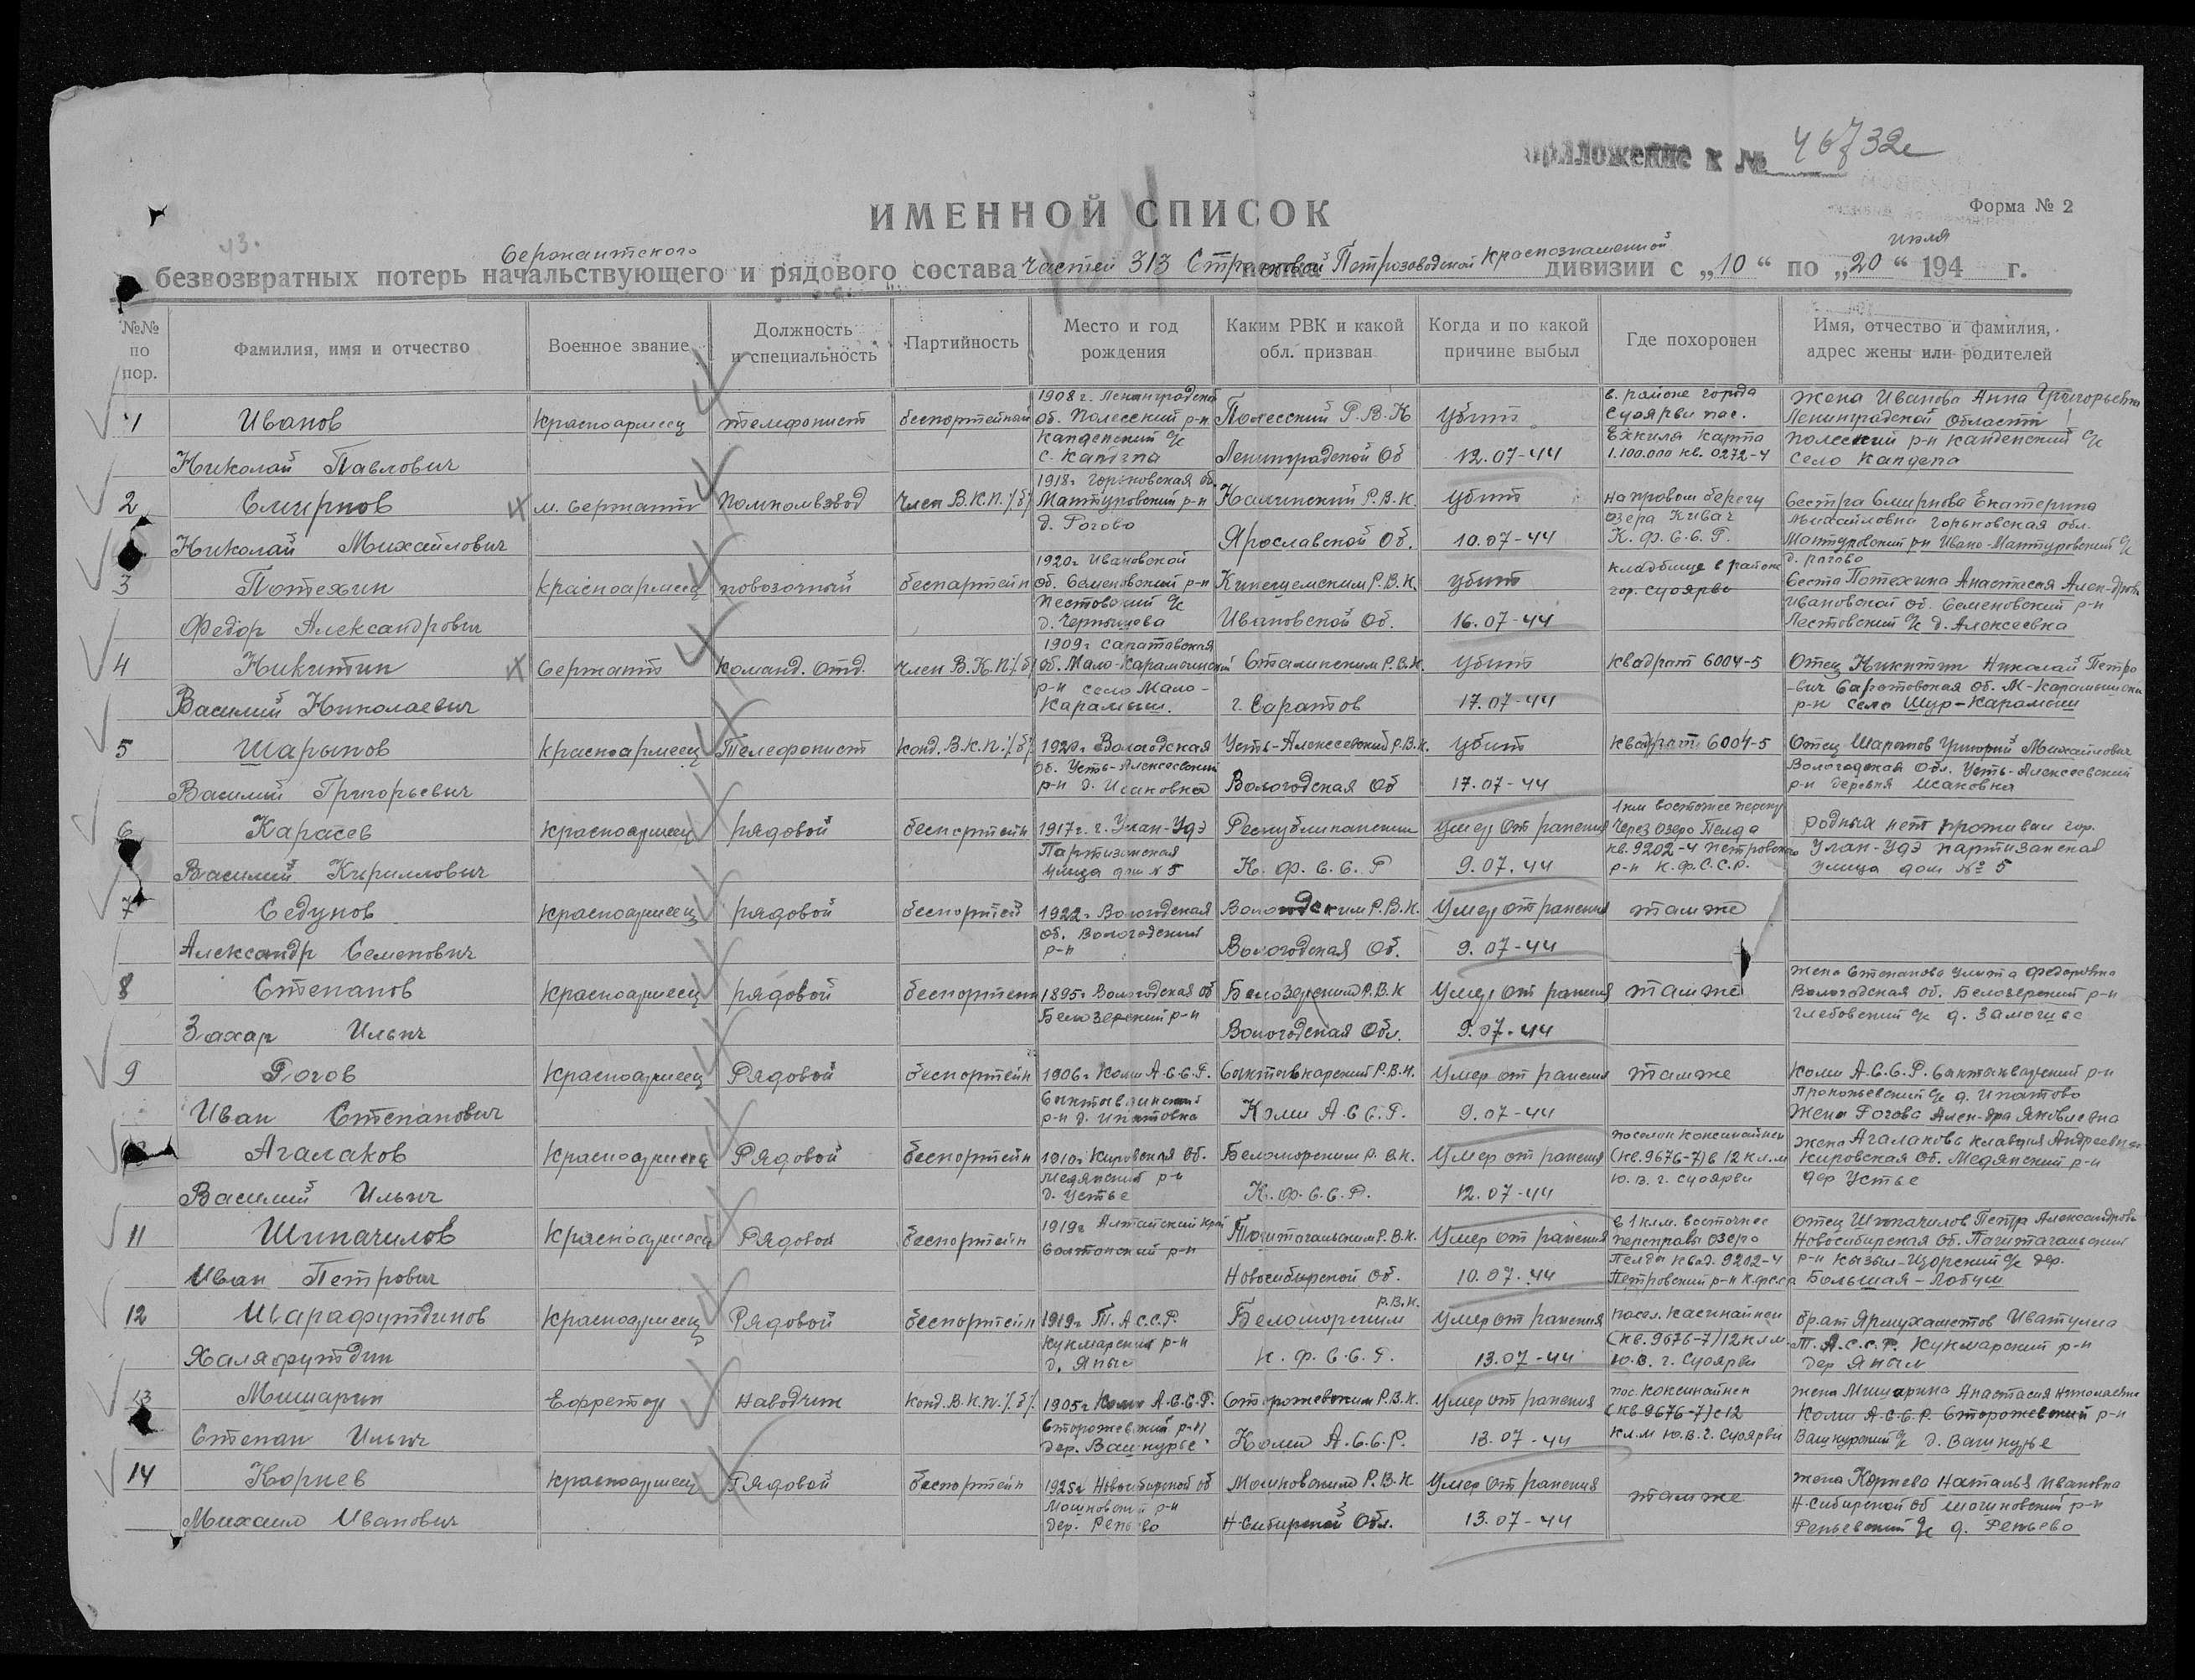 Приложение к № 46732с
ИМЕННОЙ СПИСОК
Форма № 2
43.
сержантского
июля
безвозвратных потерь начальствующего и рядового состава частей 313 Стрелковой Петрозаводской Краснознаменной дивизии с „10“ по „20“ 194 г.
№№ по пор.
Фамилия, имя и отчество
Военное звание
Должность и специальность
Партийность
Место и год рождения
Каким РВК и какой обл. призван
Когда и по какой причине выбыл
Где похоронен
Имя, отчество и фамилия, адрес жены или родителей
1 Иванов Николай Павлович
Красноармеец
телефонист
беспортейный
1908 г. Ленинградской
об. Полесский р-н
с.
Полесский Р.В.К
Ленинградской Об
убит
12.07-44
в. районе города
Суоярви пос.
карта
1.100.000 кв. 0272-4
жена Иванова Анна Григорьевна
Ленинградской Области
село Капдепа
2 Смирнов Николай Михайлович
м. Сержант
Помкомвзвод
Член В.К.П./б/
1918г Горьковская об.
Мантуровский р-н
д. Рогово
Р.В.К.
Ярославской Об.
убит
10.07-44
на правом берегу
озера Кивач
К.Ф.С.С.Р.
Сестра Смирнова Екатерина
Михайловна Горьковская обл.
Мантуровский р-н Ивано-Мантуровский с/с
д. рогово
3 Потехин Федор Александрович
красноармеец
повозочный
беспартейн
1920г Ивановской
об. Семеновский р-н
Пестовский с/с
д. Чернышева
Кинешемским Р.В.К
Ивановской Об.
убит
16.07-44
кладбище в районе
гор. Суоярви
Сестра Потехина Анастасия Алек-дровн
Ивановской об. Семеновский р-н
Пестовский с/с д. Алексеевка
4 Никитин Василий Николаевич
Сержант
Команд. отд.
Член В.К.П/б/
1909г Саратовская
об. Мало-Карамышский
р-н село Мало-
Карамыш.
Сталинским Р.В.К.
г. Саратов
убит
17.07-44
Квадрат 6004-5
Отец Никитин Николай Петро
-вич Саратовская об. М-Карамышски
р-н село Шур-Карамыш
5 Шарыпов Василий Григорьевич
Красноармеец
Телефонист
Конд. В.К.П./б/
1920г Вологодская
об. Усть-Алексеевский
р-н д. Исаковка
Усть-Алексеевский Р.В.К.
Вологодская Об
убит
17.07-44
Квадрат 6004-5
Отец Шарыпов Григорий Михайлович
Вологодская Обл. Усть-Алексеевский
р-н деревня Исаковка
6 Карасев Василий Кириллович
Красноармеец
рядовой
беспортейн
1917г. г. Улан-Удэ
Партизанская
улица дом № 5
Республиканским
К.Ф.С.С.Р
Умер от ранения
9.07.44
1 км восточнее
через озеро Пелда
кв. 9202-4 Петровского
р-н К.Ф.С.С.Р.
родных нет проживал гор.
Улан-Удэ Партизанская
улица дом № 5
7 Седунов Александр Семенович
Красноармеец
рядовой
беспортей
1922г Вологодская
об. Вологодский
р-н
Вологодским Р.В.К.
Вологодская Об.
Умер от ранения
9.07-44
там же
8 Степанов Захар Ильич
Красноармеец
рядовой
беспортейн
1895г Вологодская об
Белозерский р-н
Белозерским Р.В.К
Вологодская Обл.
Умер от ранения
9.07.44
там же
жена Степанова Улита Федоровна
Вологодская об. Белозерский р-н
Глебовский с/с д.
9 Рогов Иван Степанович
Красноармеец
Рядовой
беспортейн
1906г Коми А.С.С.Р.
р-н д. Ипатовка
Сыктывкарский Р.В.К.
Коми А.С.С.Р.
Умер от ранения
9.07-44
там же
Коми А.С.С.Р. Сыктывкарский р-н
Прокопьевский с/с д. Ипатово
жена Рогова Алек-дра Яковлевна
10 Агалаков Василий Ильич
Красноармеец
Рядовой
беспортейн
1910г Кировская об.
Медянский р-н
д. Устье
Беломорским Р.В.К.
К.Ф.С.С.Р.
Умер от ранения
12.07-44
поселок
(кв. 9676-7) в 12 кл.м
ю.в. г. Суоярви
жена Агалакова Клавдия Андреевна
Кировская Об. Медянский р-н
дер Устье
11 Шипачилов Иван Петрович
Красноармеец
Рядовой
беспортейн
1919г Алтайский край
Солтонский р-н
Р.В.К.
Новосибирской Об.
Умер от ранения
10.07.44
в 1 клм. восточнее
переправы озеро
Пелда квад. 9202-4
Петровский р-н К.Ф.С.С.Р
Отец Шипачилов Петр Александров
Новосибирская Об.
р-н с/с дер.
Большая-
12 Шарафутдинов Халяфутдин
Красноармеец
Рядовой
беспортейн
1919г Т.А.С.С.Р.
Кукмарский р-н
д. Яныл
Беломорским Р.В.К.
К.Ф.С.С.Р.
Умер от ранения
13.07-44
посел.
(кв. 9676-7) 12 клм.
ю.в. г. Суоярви
брат
Т.А.С.С.Р. Кукмарский р-н
дер Яныл
13 Мишарин Степан Ильич
Ефрейтор
Наводчик
Конд. В.К.П./б/
1905г Коми А.С.С.Р.
Сторожевский р-н
дер. Вашкурье
Сторожевским Р.В.К.
Коми А.С.С.Р.
Умер от ранения
13.07-44
пос.
(кв. 9676-7) с 12
кл.м ю.в. г. Суоярви
жена Мишарина Анастасия Николаевна
Коми А.С.С.Р. Сторожевский р-н
Вашкурский с/с д. Вашкурье
14 Корнев Михаил Иванович
Красноармеец
Рядовой
беспортейн
1925г Новосибирской об
Мошковский р-н
дер. Репьево
Мошковским Р.В.К
Н-Сибирской Обл.
Умер от ранения
13.07-44
там же
жена Корнева Наталья Ивановна
Н-Сибирской об Мошковский р-н
Репьевский с/с д. Репьево